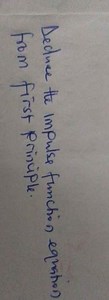 Deduce the Impulse function equation
from first principle.